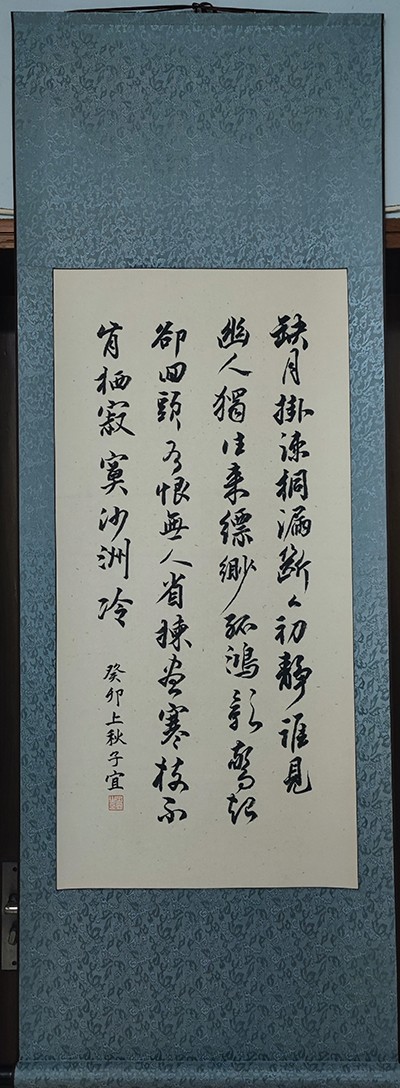 缺月掛疎桐漏斷人初靜誰見
幽人獨往来縹緲孤鴻影驚起
卻回頭有恨無人省揀盡寒枝不
肯栖寂寞沙洲冷
癸卯上秋子宜